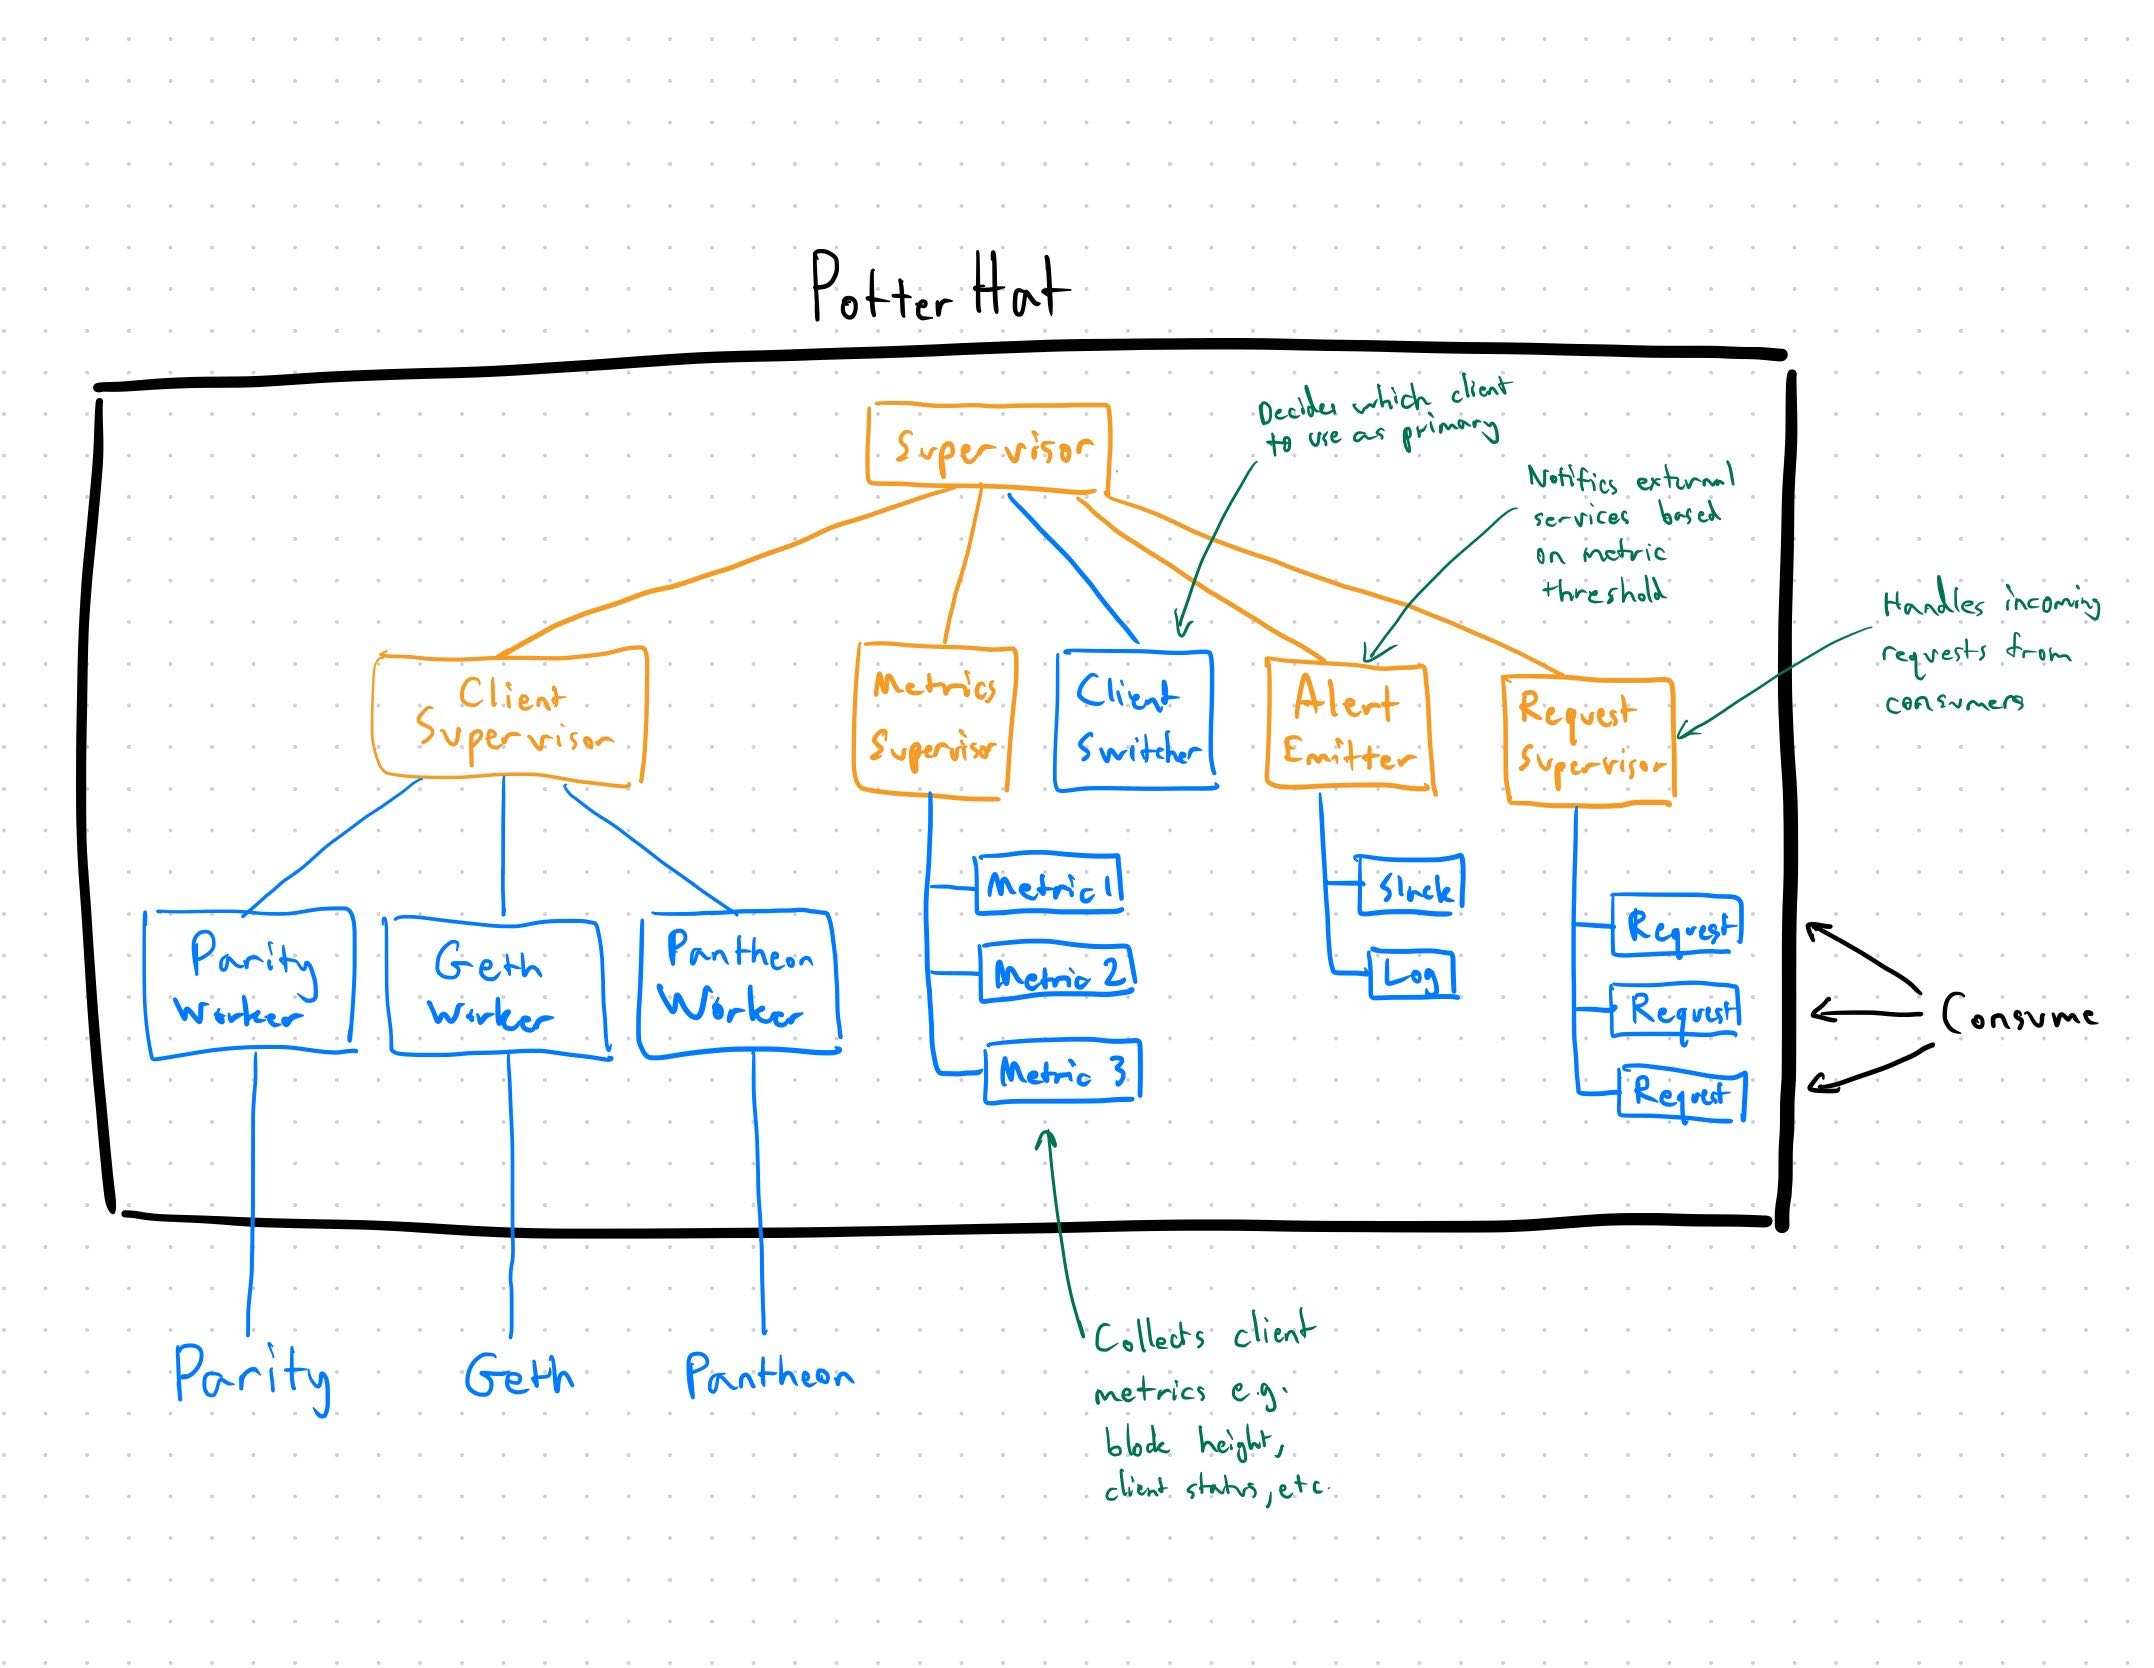 Potter Hat
Supervisor
Decides which client
to use as primary
Notifies external
services based
on metric
threshold
Handles incoming
requests from
consumers
Client
Supervisor
Metrics
Supervisor
Client
Switcher
Alert
Emitter
Request
Supervisor
Parity
Worker
Geth
Worker
Pantheon
Worker
Metric 1
Metric 2
Metric 3
Slack
Log
Request
Request
Request
Consume
Parity
Geth
Pantheon
Collects client
metrics e.g.
block height,
client status, etc.